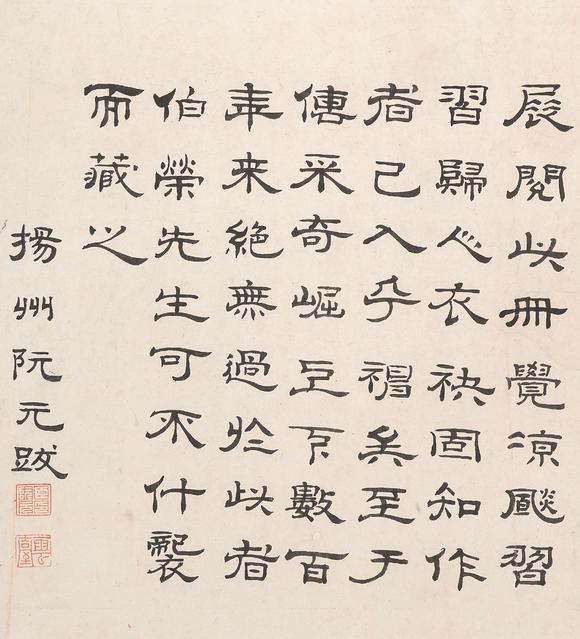 展閱此冊覺涼習
習歸心衣袂固知作
者已入乎矣至于
傳采奇崛下數百
年来絕無過於此者
伯榮先生可不什襲
而藏之
揚州阮元跋